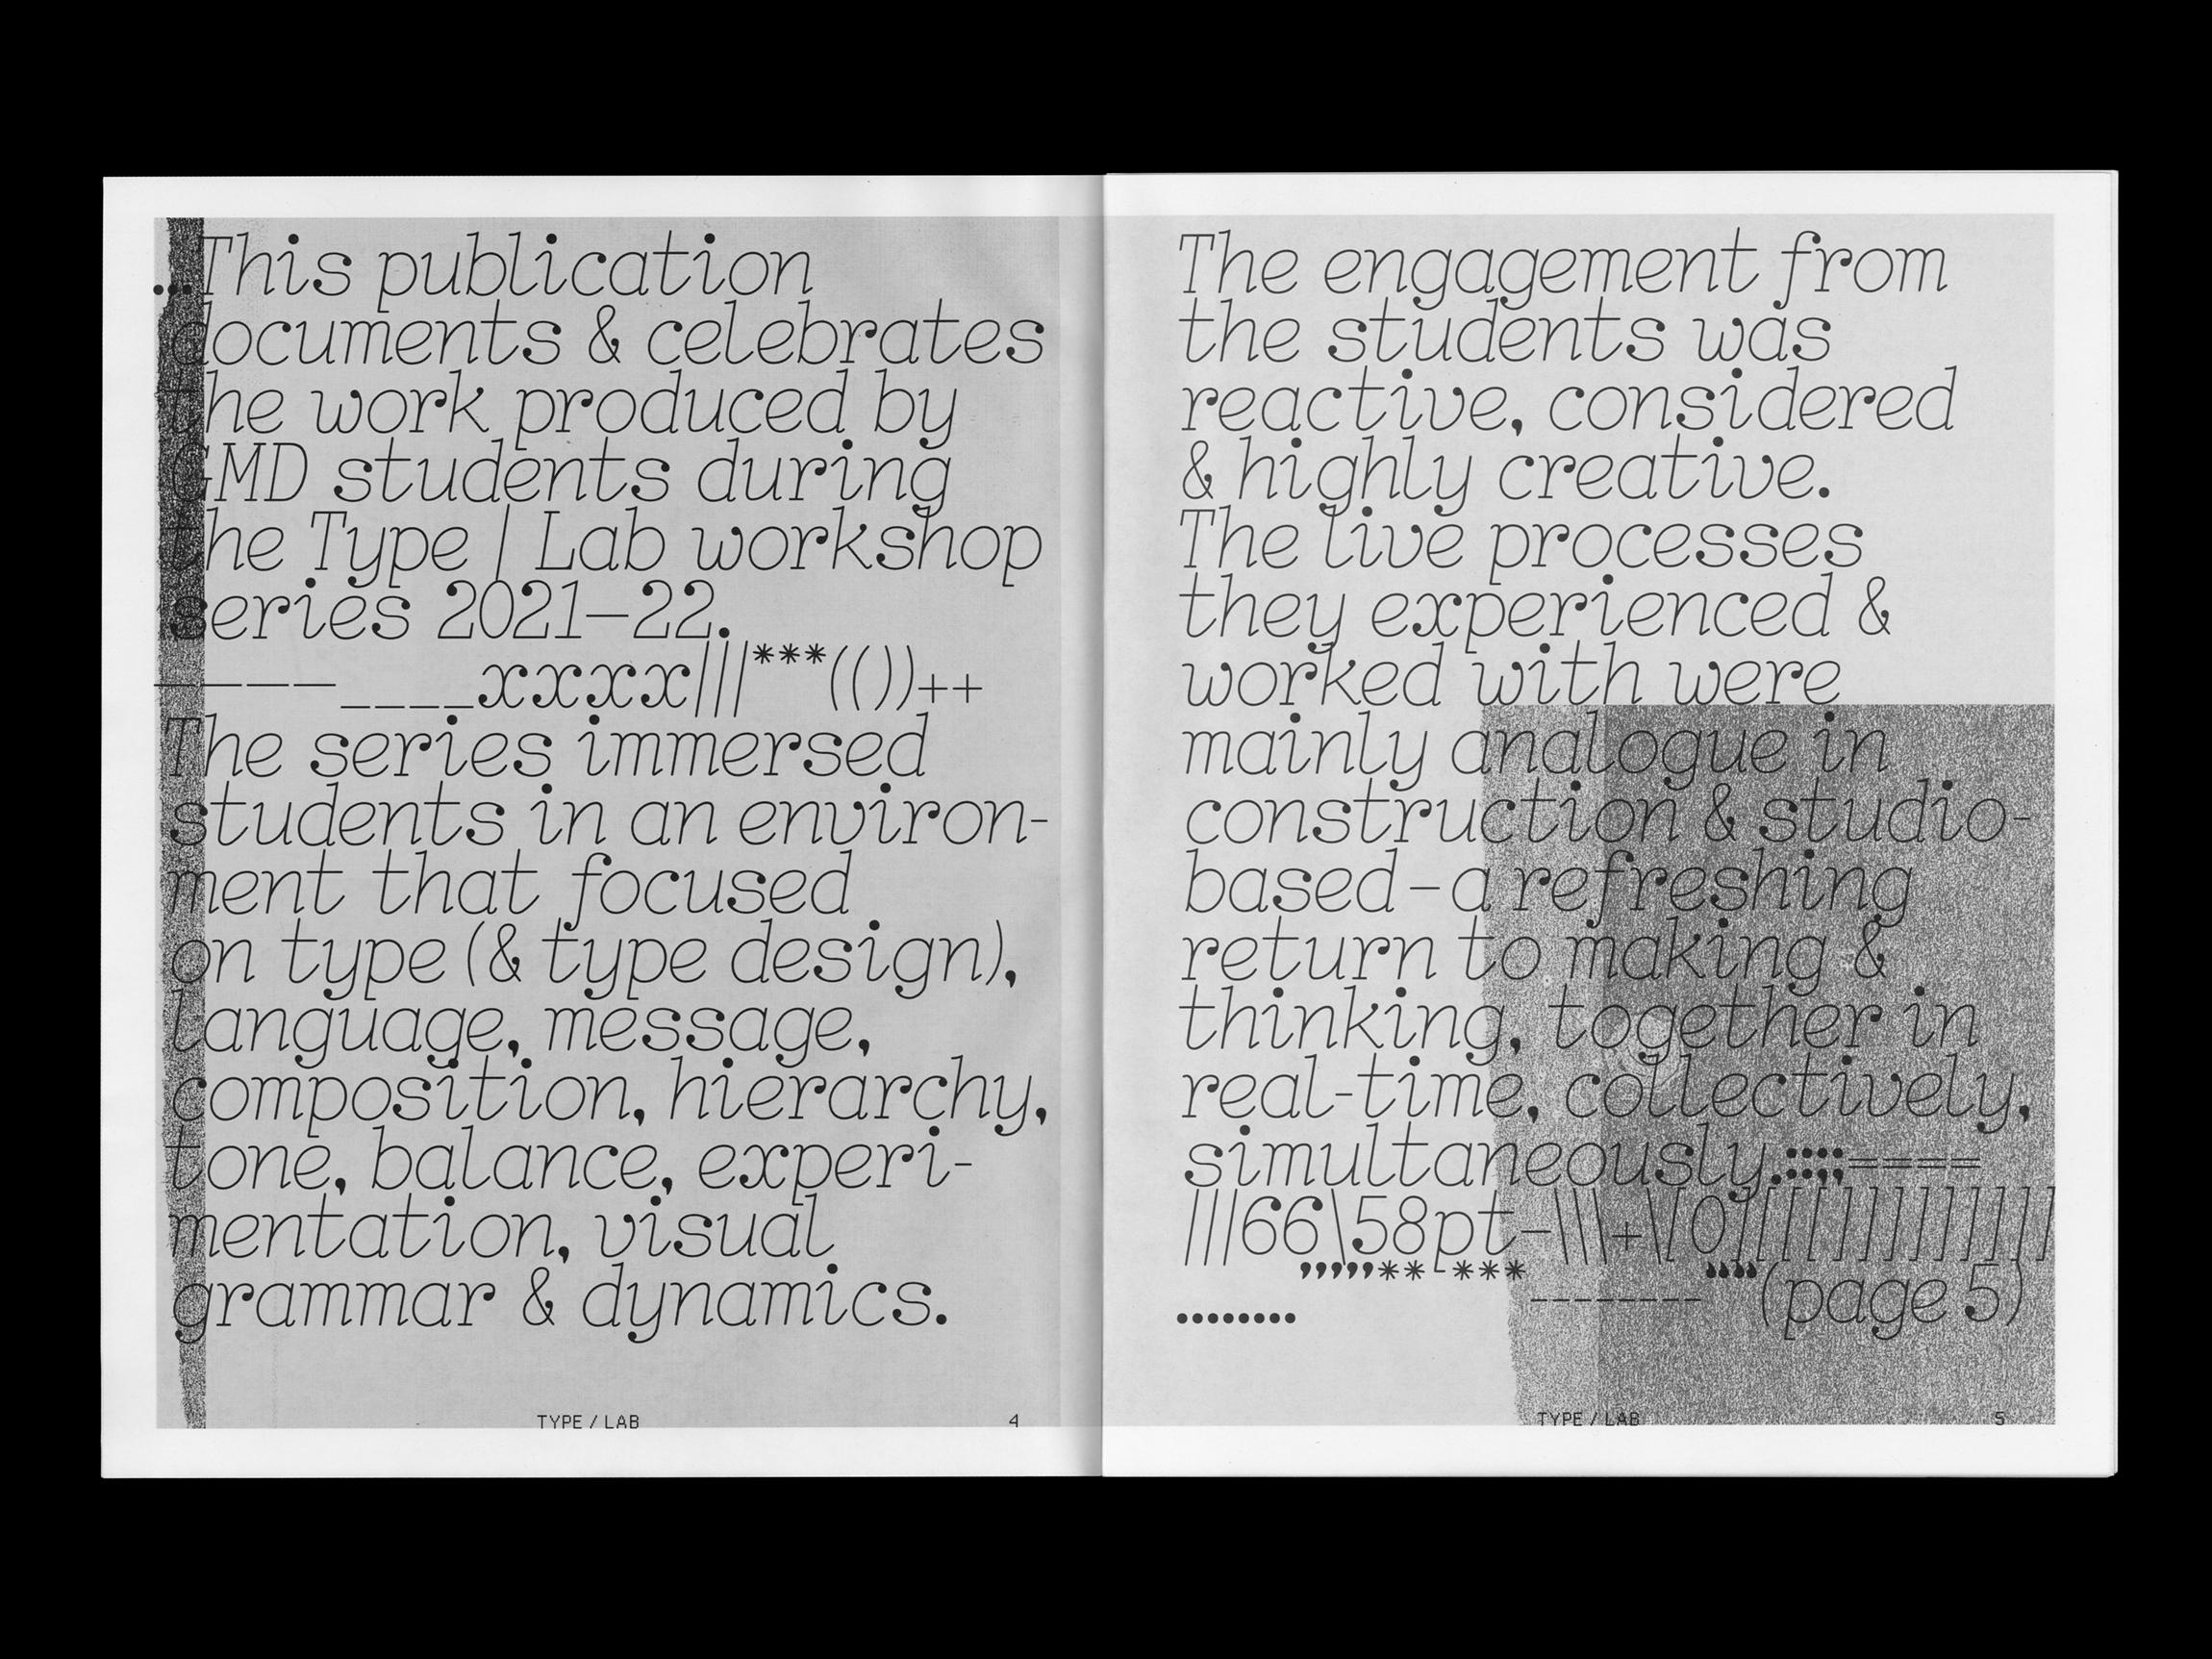 ...This publication
documents & celebrates
the work produced by
GMD students during
the Type | Lab workshop
series 2021–22.
————____xxxx|||***(())++
The series immersed
students in an environ-
ment that focused
on type (& type design),
language, message,
composition, hierarchy,
tone, balance, experi-
mentation, visual
grammar & dynamics.
TYPE / LAB 4
The engagement from
the students was
reactive, considered
& highly creative.
The live processes
they experienced &
worked with were
mainly analogue in
construction & studio-
based – a refreshing
return to making &
thinking, together in
real-time, collectively,
simultaneously.::;;====
|||66\58pt-\\\+\[0][[[[]]]]]]]]]
,,,,,**-***
--------
""(page 5)
........
TYPE / LAB 5